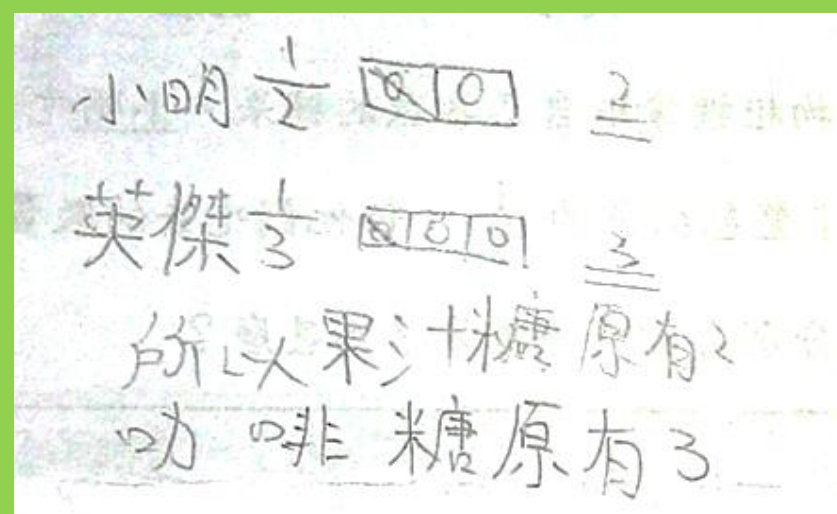 小明 1/2 0 0 2
英傑 1/3 0 0 0 3
所以果汁糖原有2
咖啡糖原有3